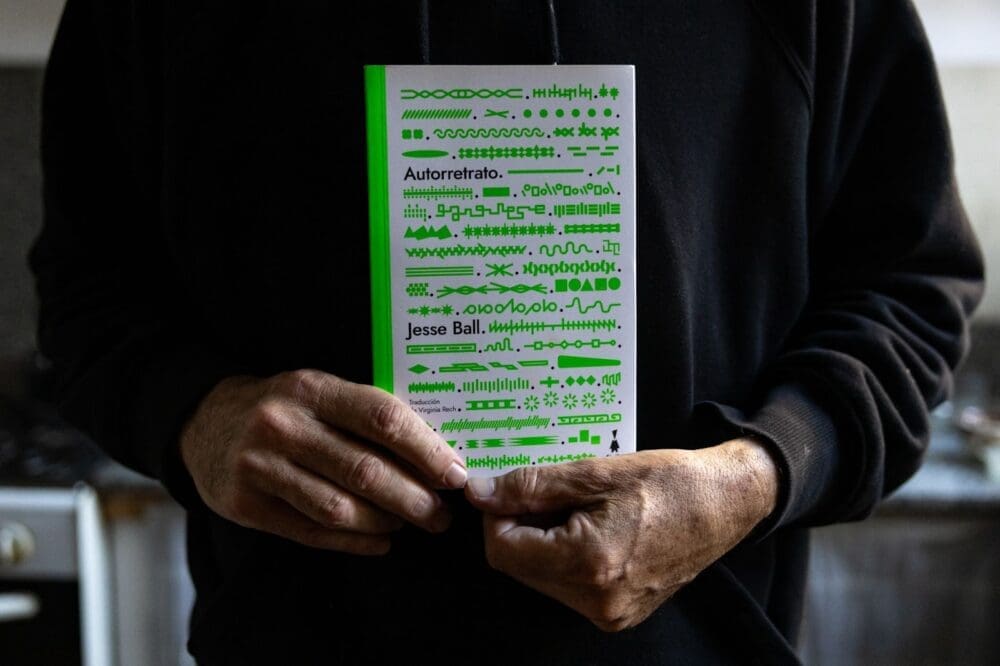 Autorretrato.
Jesse Ball.
Traducción
de Virginia Rech.